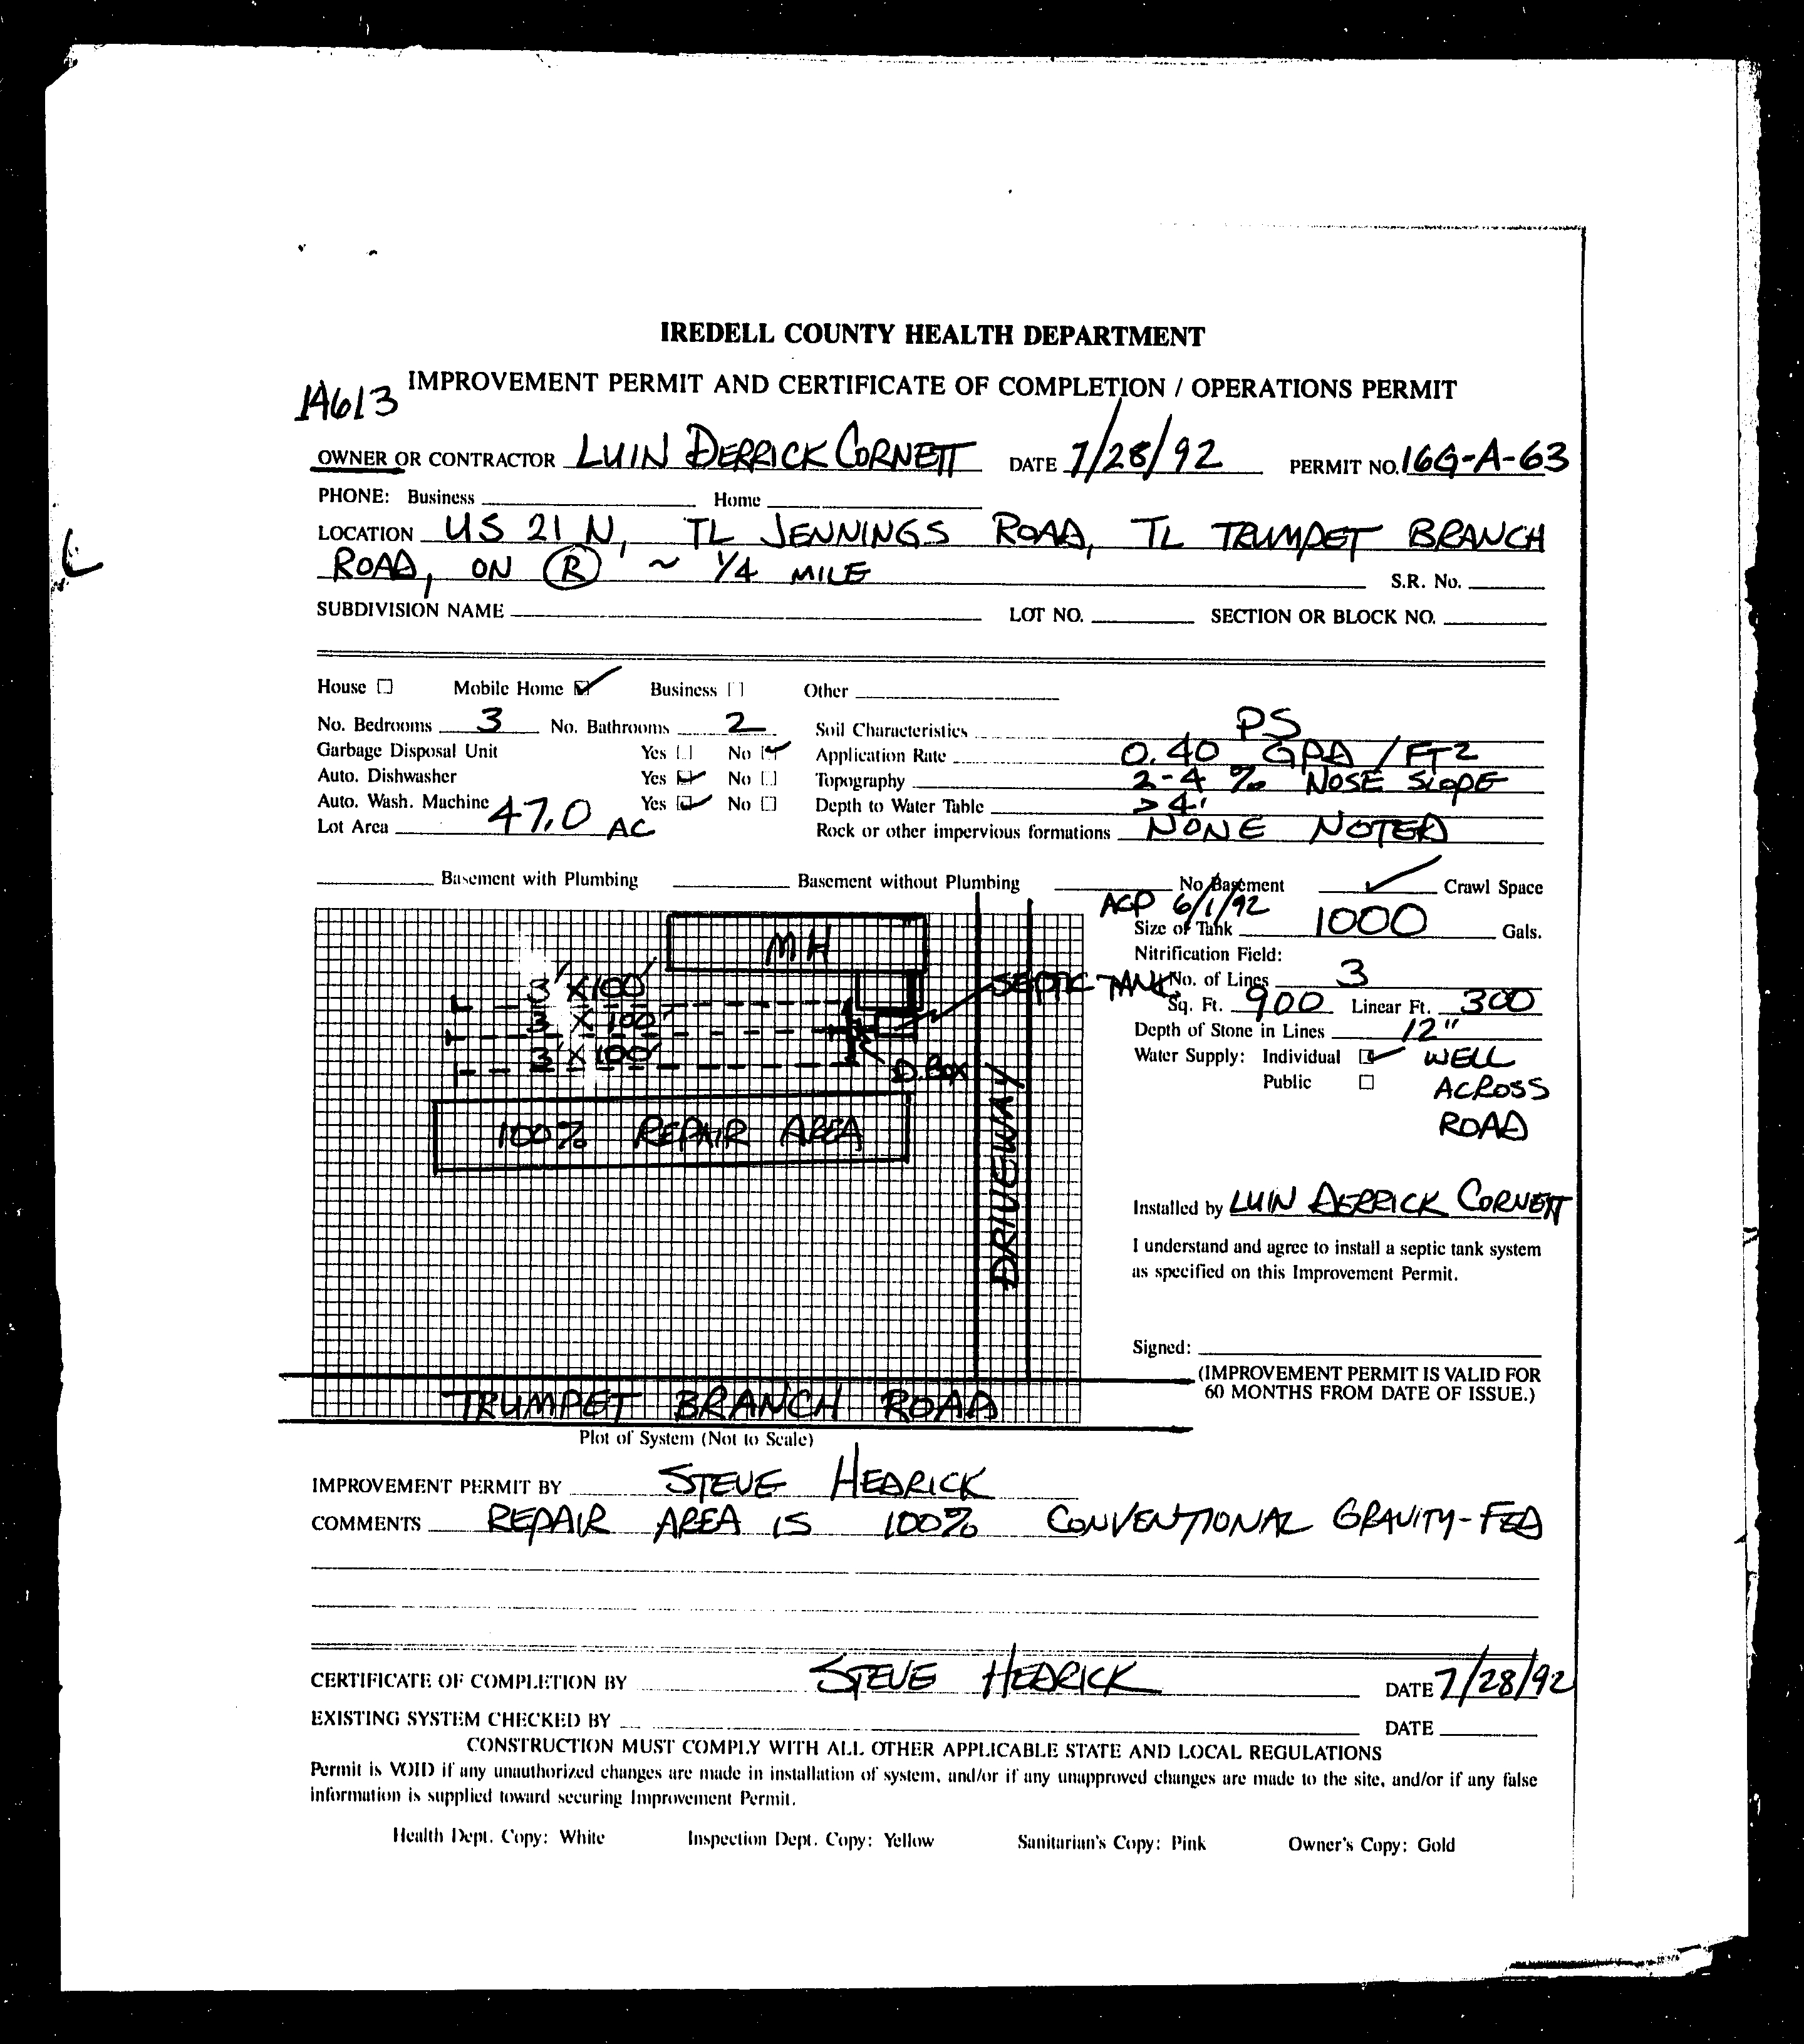 IREDELL COUNTY HEALTH DEPARTMENT
IMPROVEMENT PERMIT AND CERTIFICATE OF COMPLETION / OPERATIONS PERMIT
1A613
OWNER OR CONTRACTOR LUIN DERRICK CORNETT DATE 7/28/92 PERMIT NO. 16G-A-63
PHONE: Business Home
LOCATION US 21 N, TL JENNINGS ROAD, TL TRUMPET BRANCH
ROAD, ON R ~ 1/4 MILE S.R. No.
SUBDIVISION NAME LOT NO. SECTION OR BLOCK NO.
House Mobile Home ✓ Business Other
No. Bedrooms 3 No. Bathrooms 2 Soil Characteristics PS
Garbage Disposal Unit Yes No ✓ Application Rate 0.40 GPD/FT2
Auto. Dishwasher Yes ✓ No Topography 2-4 % NOSE SLOPE
Auto. Wash. Machine Yes ✓ No Depth to Water Table >4'
Lot Area 47.0 AC Rock or other impervious formations NONE NOTED
Basement with Plumbing Basement without Plumbing No Basement ✓ Crawl Space
ACP 6/1/92
Size of Tank 1000 Gals.
MH
Nitrification Field:
3' X 100' SEPTIC TANK No. of Lines 3
3' X 100' Sq. Ft. 900 Linear Ft. 300
Depth of Stone in Lines 12"
3' X 100' Water Supply: Individual ✓ WELL
D.BOX Public ACROSS
ROAD
100% REPAIR AREA
DRIVEWAY
Installed by LUIN DERRICK CORNETT
I understand and agree to install a septic tank system
as specified on this Improvement Permit.
Signed:
(IMPROVEMENT PERMIT IS VALID FOR
60 MONTHS FROM DATE OF ISSUE.)
TRUMPET BRANCH ROAD
Plot of System (Not to Scale)
IMPROVEMENT PERMIT BY STEVE HEDRICK
COMMENTS REPAIR AREA IS 100% CONVENTIONAL GRAVITY-FED
CERTIFICATE OF COMPLETION BY STEVE HEDRICK DATE 7/28/92
EXISTING SYSTEM CHECKED BY DATE
CONSTRUCTION MUST COMPLY WITH ALL OTHER APPLICABLE STATE AND LOCAL REGULATIONS
Permit is VOID if any unauthorized changes are made in installation of system, and/or if any unapproved changes are made to the site, and/or if any false
information is supplied toward securing Improvement Permit.
Health Dept. Copy: White Inspection Dept. Copy: Yellow Sanitarian's Copy: Pink Owner's Copy: Gold